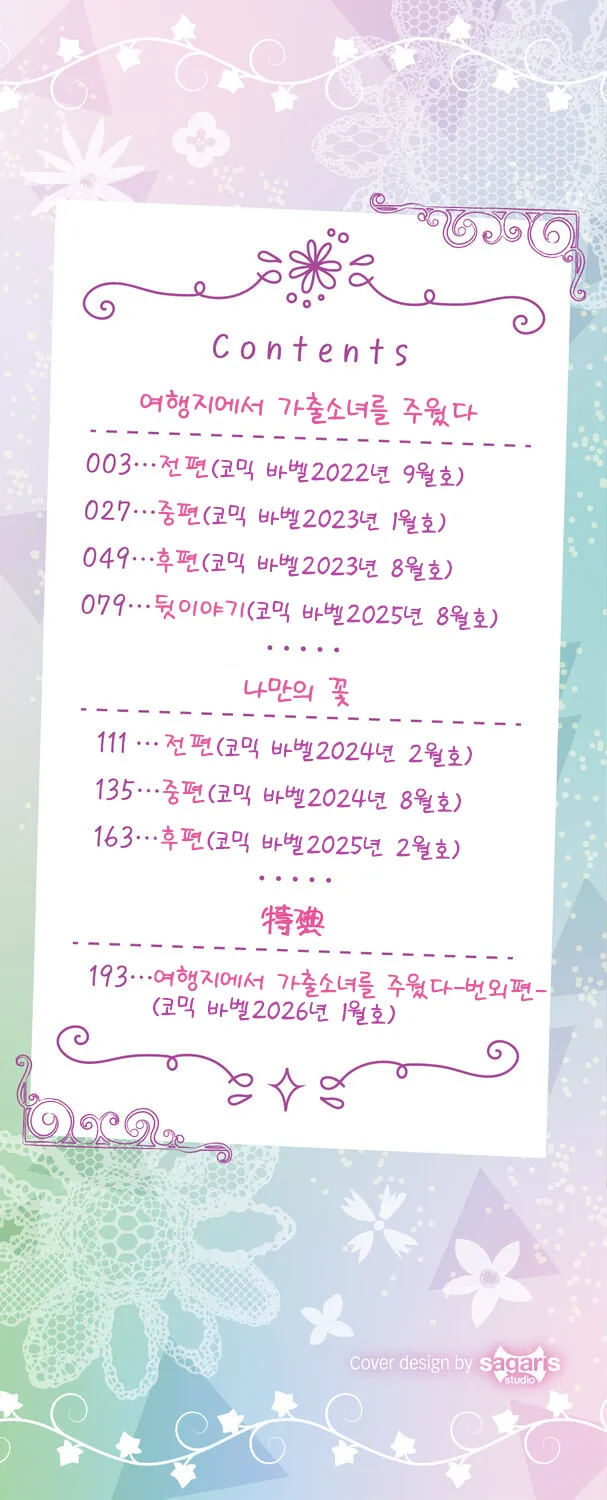 Contents
여행지에서 가출소녀를 주웠다
003…전편(코믹 바벨2022년 9월호)
027…중편(코믹 바벨2023년 1월호)
049…후편(코믹 바벨2023년 8월호)
079…뒷이야기(코믹 바벨2025년 8월호)
나만의 꽃
111 …전편(코믹 바벨2024년 2월호)
135…중편(코믹 바벨2024년 8월호)
163…후편(코믹 바벨2025년 2월호)
特典
193…여행지에서 가출소녀를 주웠다-번외편-
(코믹 바벨2026년 1월호)
Cover design by sagaris studio